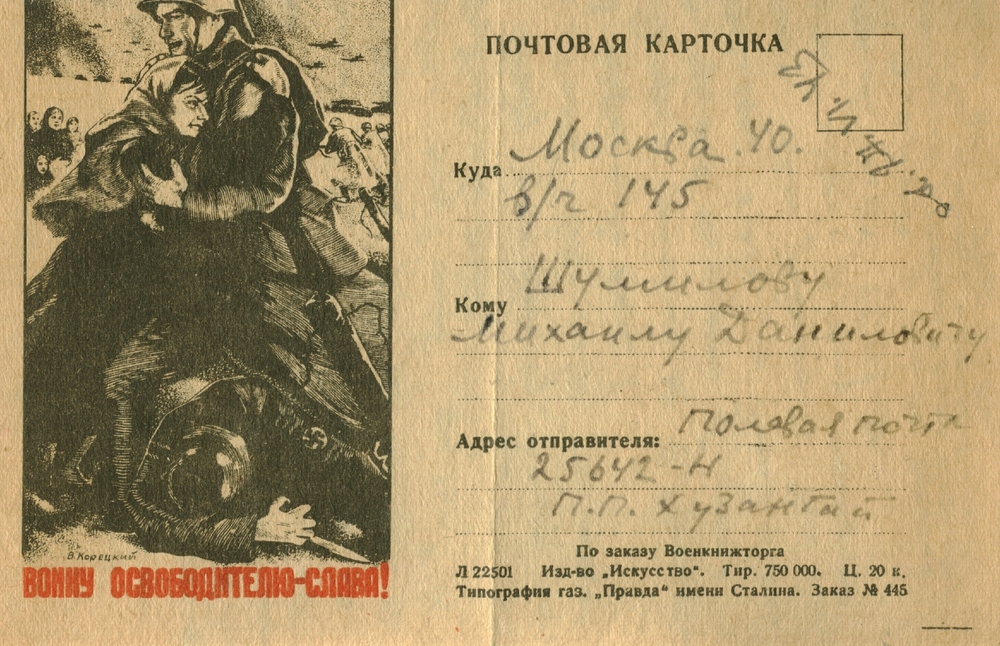 ПОЧТОВАЯ КАРТОЧКА
Куда Москва 40.
в/ч 145
Кому Шумилову
Михаилу Даниловичу
Адрес отправителя: Полевая почта
25642-Н
П.П. Хузангай
В. Корецкий
ВОИНУ ОСВОБОДИТЕЛЮ-СЛАВА!
По заказу Военкнижторга
Л 22501 Изд-во „Искусство“. Тир. 750 000. Ц. 20 к.
Типография газ. „Правда“ имени Сталина. Заказ № 445